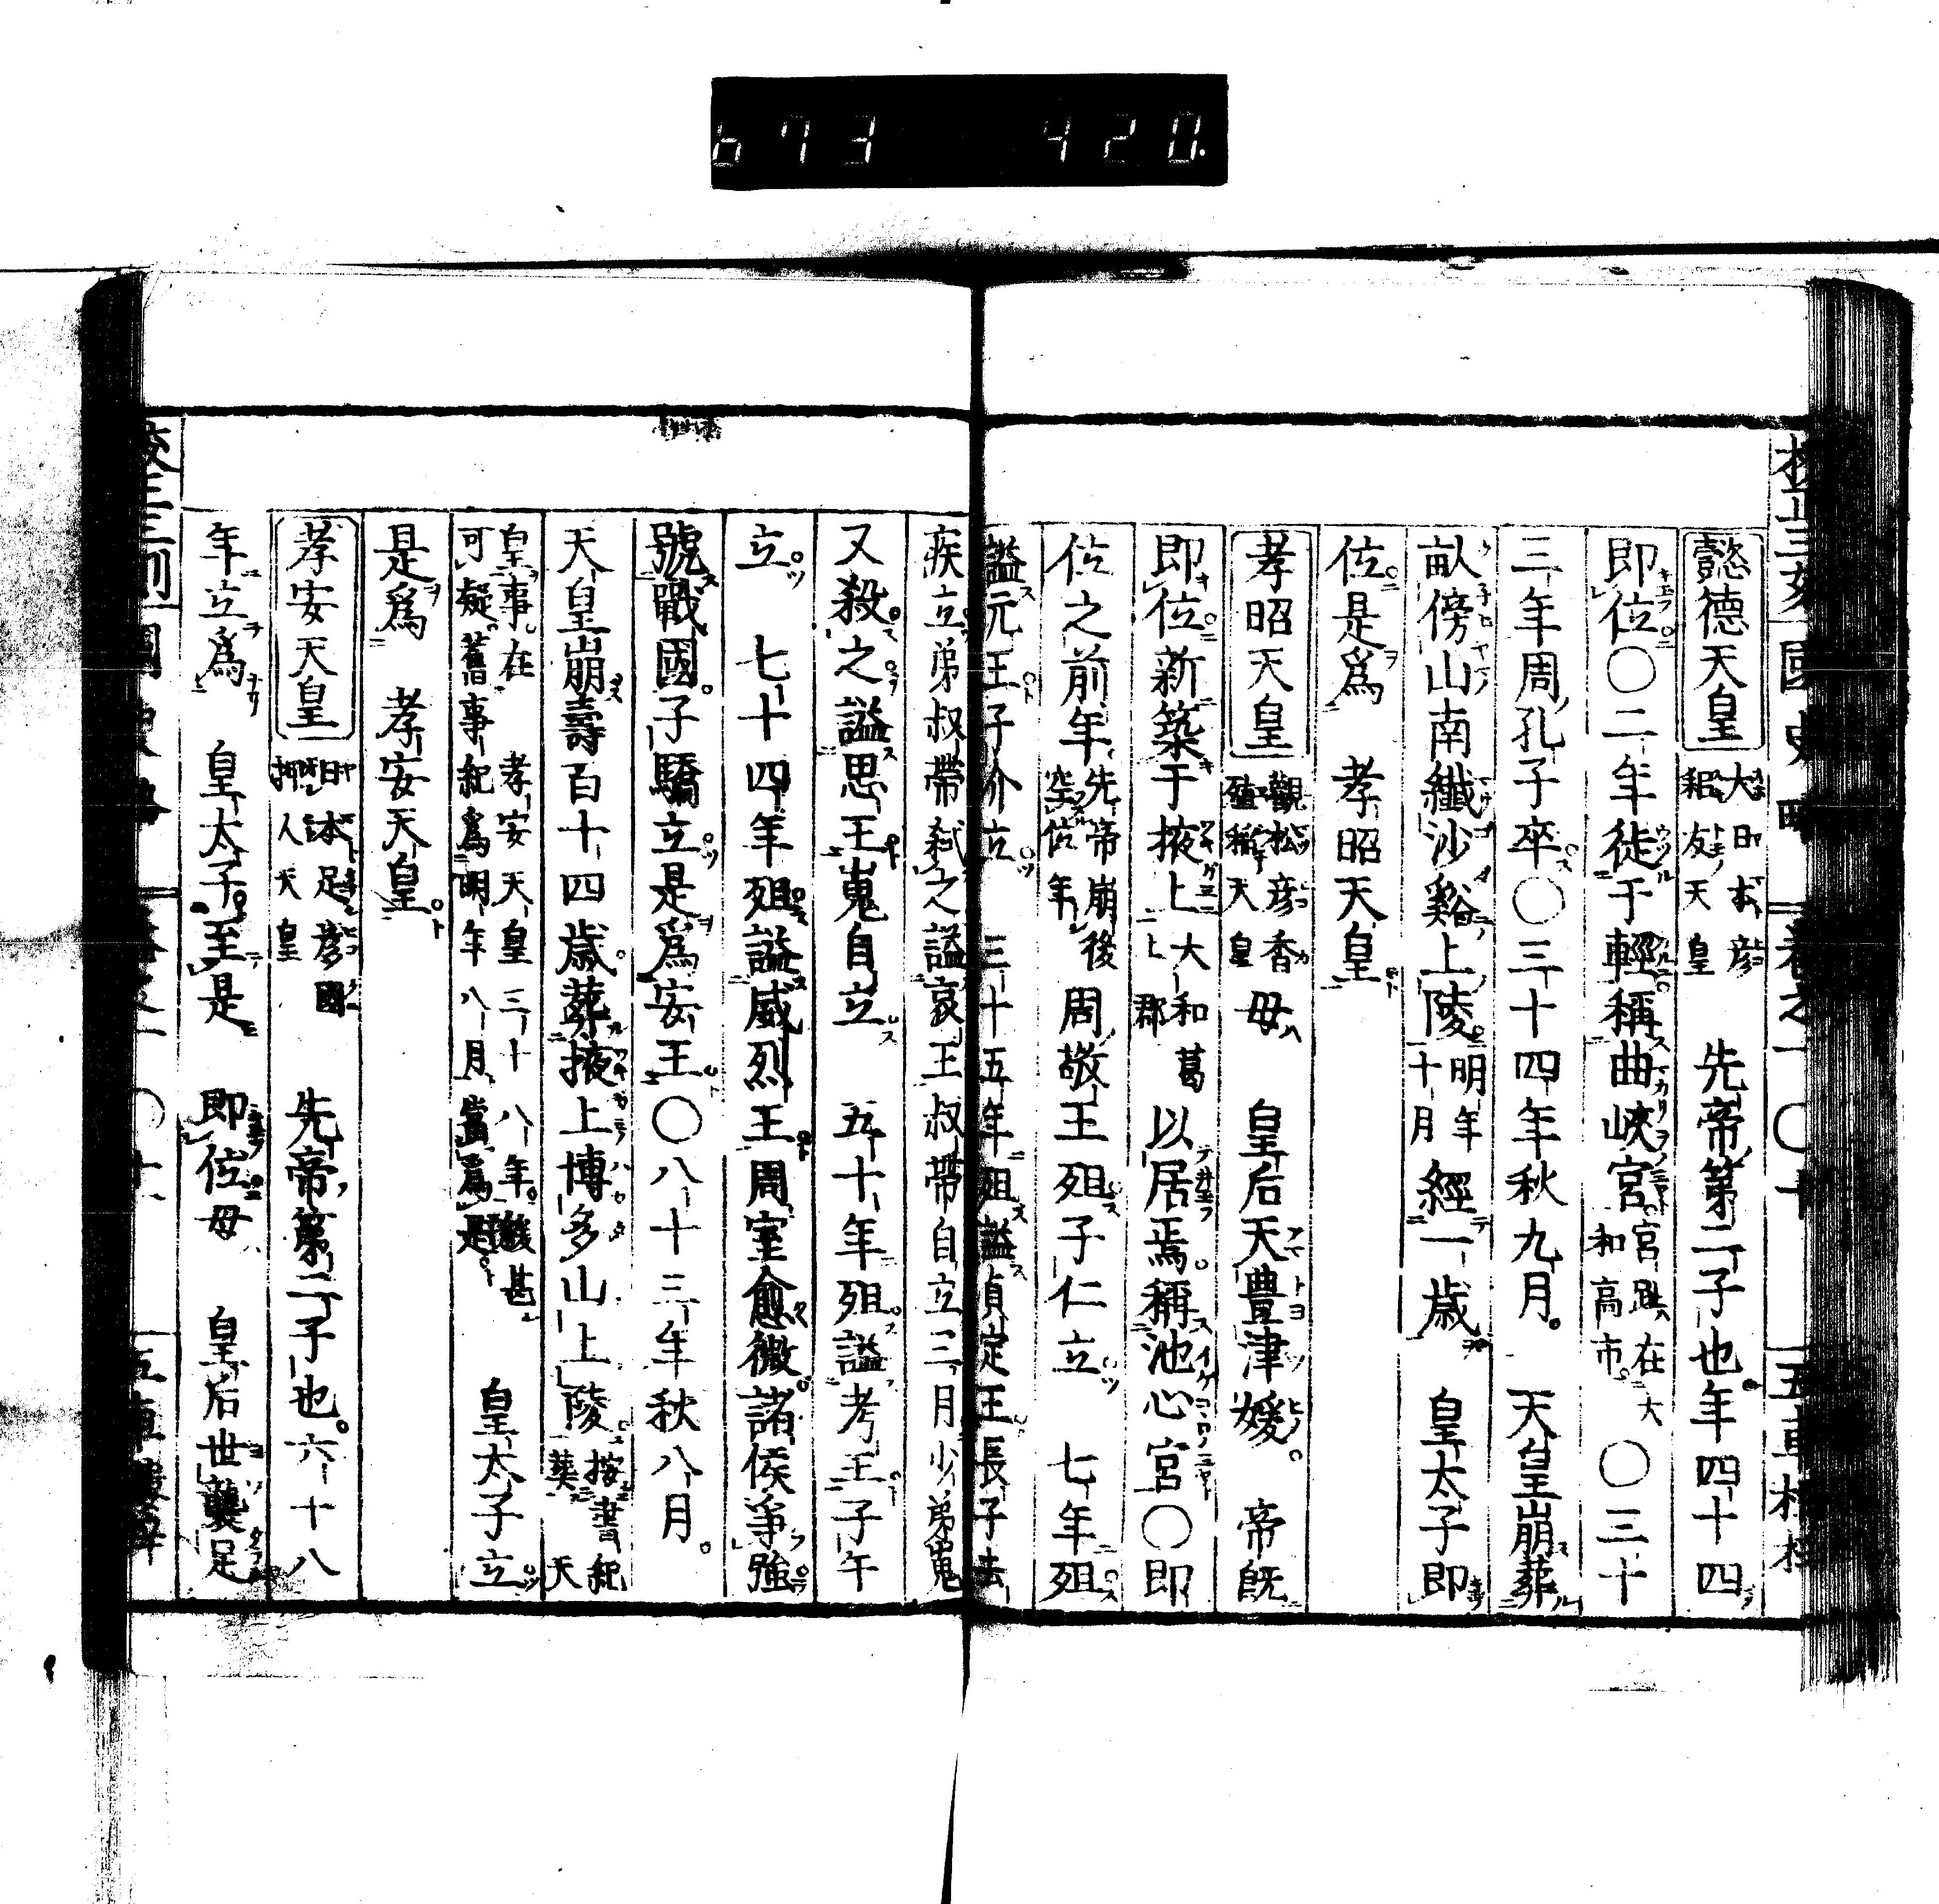 673 420.
懿德天皇 大日本彦耜友天皇 先帝第二子也年四十四
即位〇二年徙于輕稱曲峽宮宮趾在大和高市〇三十
三年周孔子卒〇三十四年秋九月 天皇崩葬
畝傍山南纖沙谿上陵明年十月經一歲 皇太子即
位是爲 孝昭天皇
孝昭天皇 觀松彦香殖稱天皇 母 皇后天豊津媛 帝既
即位新築于掖上大和葛上郡以居焉稱池心宮〇即
位之前年先帝崩後空位年周敬王殂子仁立 七年殂
謚元王子介立 三十五年殂謚貞定王長子去
疾立弟叔帶弑之謚哀王叔帶自立三月少弟嵬
又殺之謚思王嵬自立 五十年殂謚考王子午
立 七十四年殂謚威烈王周室愈微諸侯爭強
號戰國子驕立是爲安王〇八十三年秋八月
天皇崩壽百十四歲葬掖上博多山上陵按書紀葬天
皇事在 孝安天皇三十八年甚可疑舊事紀爲明年八月當爲是 皇太子立
是爲 孝安天皇
孝安天皇 日本足彦國押人天皇 先帝第二子也六十八
年立爲 皇太子至是 即位母 皇后世襲足